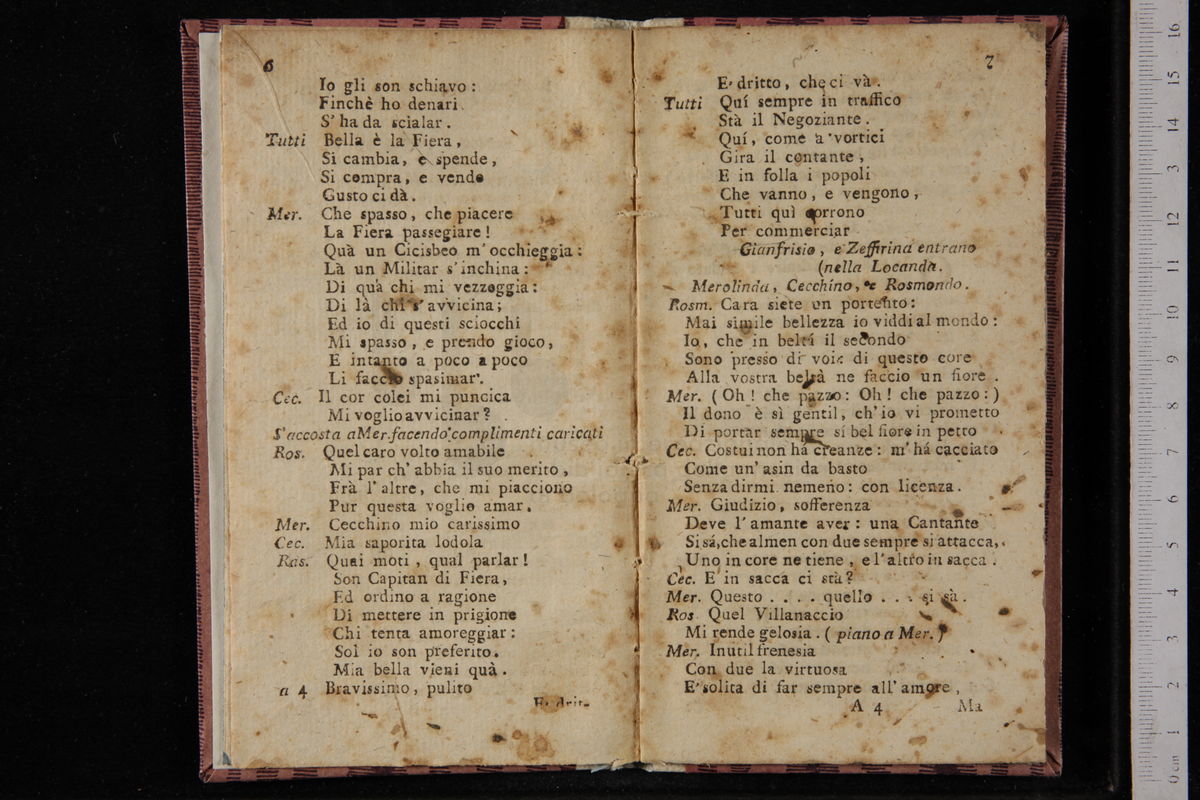 6
Io gli son schiavo :
Finchè ho denari
S' ha da scialar .
Tutti Bella è la Fiera ,
Si cambia , e spende ,
Si compra , e vende
Gusto ci dà .
Mer. Che spasso , che piacere
La Fiera passegiare !
Quà un Cicisbeo m' occhieggia :
Là un Militar s' inchina :
Di quà chi mi vezzeggia :
Di là chi s' avvicina ;
Ed io di questi sciocchi
Mi spasso , e prendo gioco ,
E intanto a poco a poco
Li faccio spasimar .
Cec. Il cor colei mi puncica
Mi voglio avvicinar ?
S'accosta a Mer. facendo complimenti caricati
Ros. Quel caro volto amabile
Mi par ch' abbia il suo merito ,
Frà l' altre , che mi piacciono
Pur questa voglio amar .
Mer. Cecchino mio carissimo
Cec. Mia saporita lodola
Ras. Quai moti , qual parlar !
Son Capitan di Fiera ,
Ed ordino a ragione
Di mettere in prigione
Chi tenta amoreggiar :
Sol io son preferito .
Mia bella vieni quà .
a 4 Bravissimo , pulito
E' drit-
7
E' dritto , che ci và .
Tutti Quí sempre in traffico
Stà il Negoziante .
Quí , come a' vortici
Gira il contante ,
E in folla i popoli
Che vanno , e vengono ,
Tutti quì corrono
Per commerciar
Gianfrisio , e Zeffirina entrano
(nella Locanda .
Merolinda , Cecchino , e Rosmondo .
Rosm. Cara siete un portento :
Mai simile bellezza io viddi al mondo :
Io , che in beltá il secondo
Sono presso di voi di questo core
Alla vostra beltà ne faccio un fiore .
Mer. ( Oh ! che pazzo : Oh ! che pazzo : )
Il dono è sì gentil , ch' io vi prometto
Di portar sempre sí bel fiore in petto
Cec. Costui non há creanze : m' há cacciato
Come un' asin da basto
Senza dirmi nemeno : con licenza .
Mer. Giudizio , sofferenza
Deve l' amante aver : una Cantante
Si sá, che almen con due sempre si attacca,
Uno in core ne tiene , e l' altro in sacca .
Cec. E in sacca ci stà ?
Mer. Questo . . . . quello . . . si sà .
Ros Quel Villanaccio
Mi rende gelosia . ( piano a Mer. )
Mer. Inutil frenesia
Con due la virtuosa
E' solita di far sempre all' amore ,
A 4 Ma
0 cm 1 2 3 4 5 6 7 8 9 10 11 12 13 14 15 16